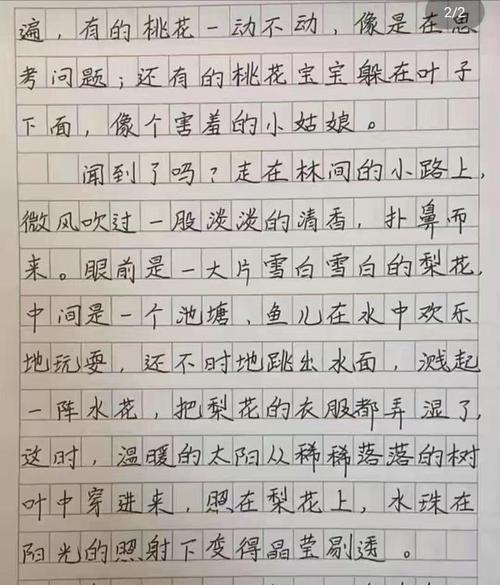 2/2
遍，有的桃花一动不动，像是在思
考问题；还有的桃花宝宝躲在叶子
下面，像个害羞的小姑娘。
闻到了吗？走在林间的小路上，
微风吹过一股淡淡的清香，扑鼻而
来。眼前是一大片雪白雪白的梨花，
中间是一个池塘、鱼儿在水中欢乐
地玩耍，还不时地跳出水面，溅起
一阵水花，把梨花的衣服都弄湿了，
这时，温暖的太阳从稀稀落落的树
叶中穿进来，照在梨花上，水珠在
阳光的照射下变得晶莹剔透。